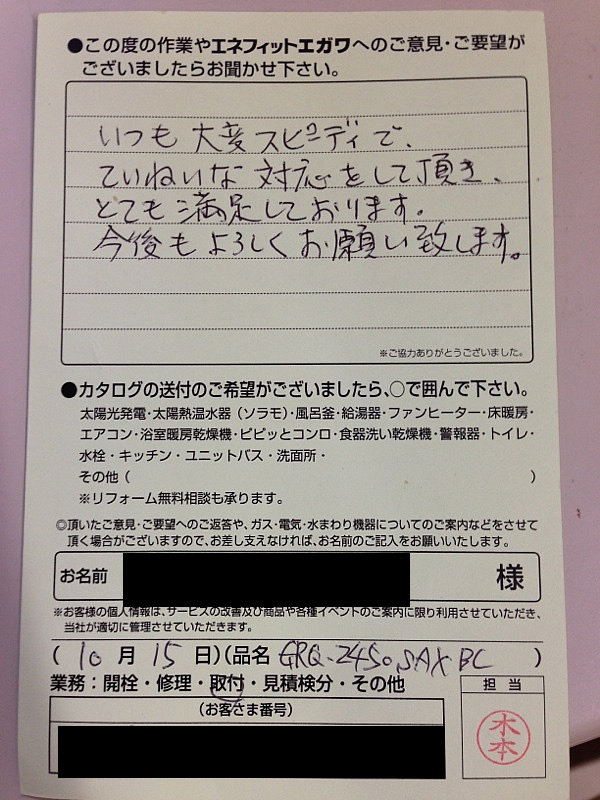 ●この度の作業やエネフィットエガワへのご意見・ご要望が
ございましたらお聞かせ下さい。
いつも大変スピーディで、
ていねいな対応をして頂き、
とても満足しております。
今後もよろしくお願い致します。
※ご協力ありがとうございました。
●カタログの送付のご希望がございましたら、○で囲んで下さい。
太陽光発電・太陽熱温水器（ソラモ）・風呂釜・給湯器・ファンヒーター・床暖房・
エアコン・浴室暖房乾燥機・ピピッとコンロ・食器洗い乾燥機・警報器・トイレ・
水栓・キッチン・ユニットバス・洗面所・
その他（ ）
※リフォーム無料相談も承ります。
◎頂いたご意見・ご要望へのご返答や、ガス・電気・水まわり機器についてのご案内などをさせて
頂く場合がございますので、お差し支えなければ、お名前のご記入をお願いいたします。
お名前 様
※お客様の個人情報は、サービスの改善及び商品や各種イベントのご案内に限り利用させていただき、
当社が適切に管理させていただきます。
（10月15日）（品名 GRQ-2450SAX BC ）
業務：開栓・修理・取付・見積検分・その他
担当
（お客さま番号）
木本